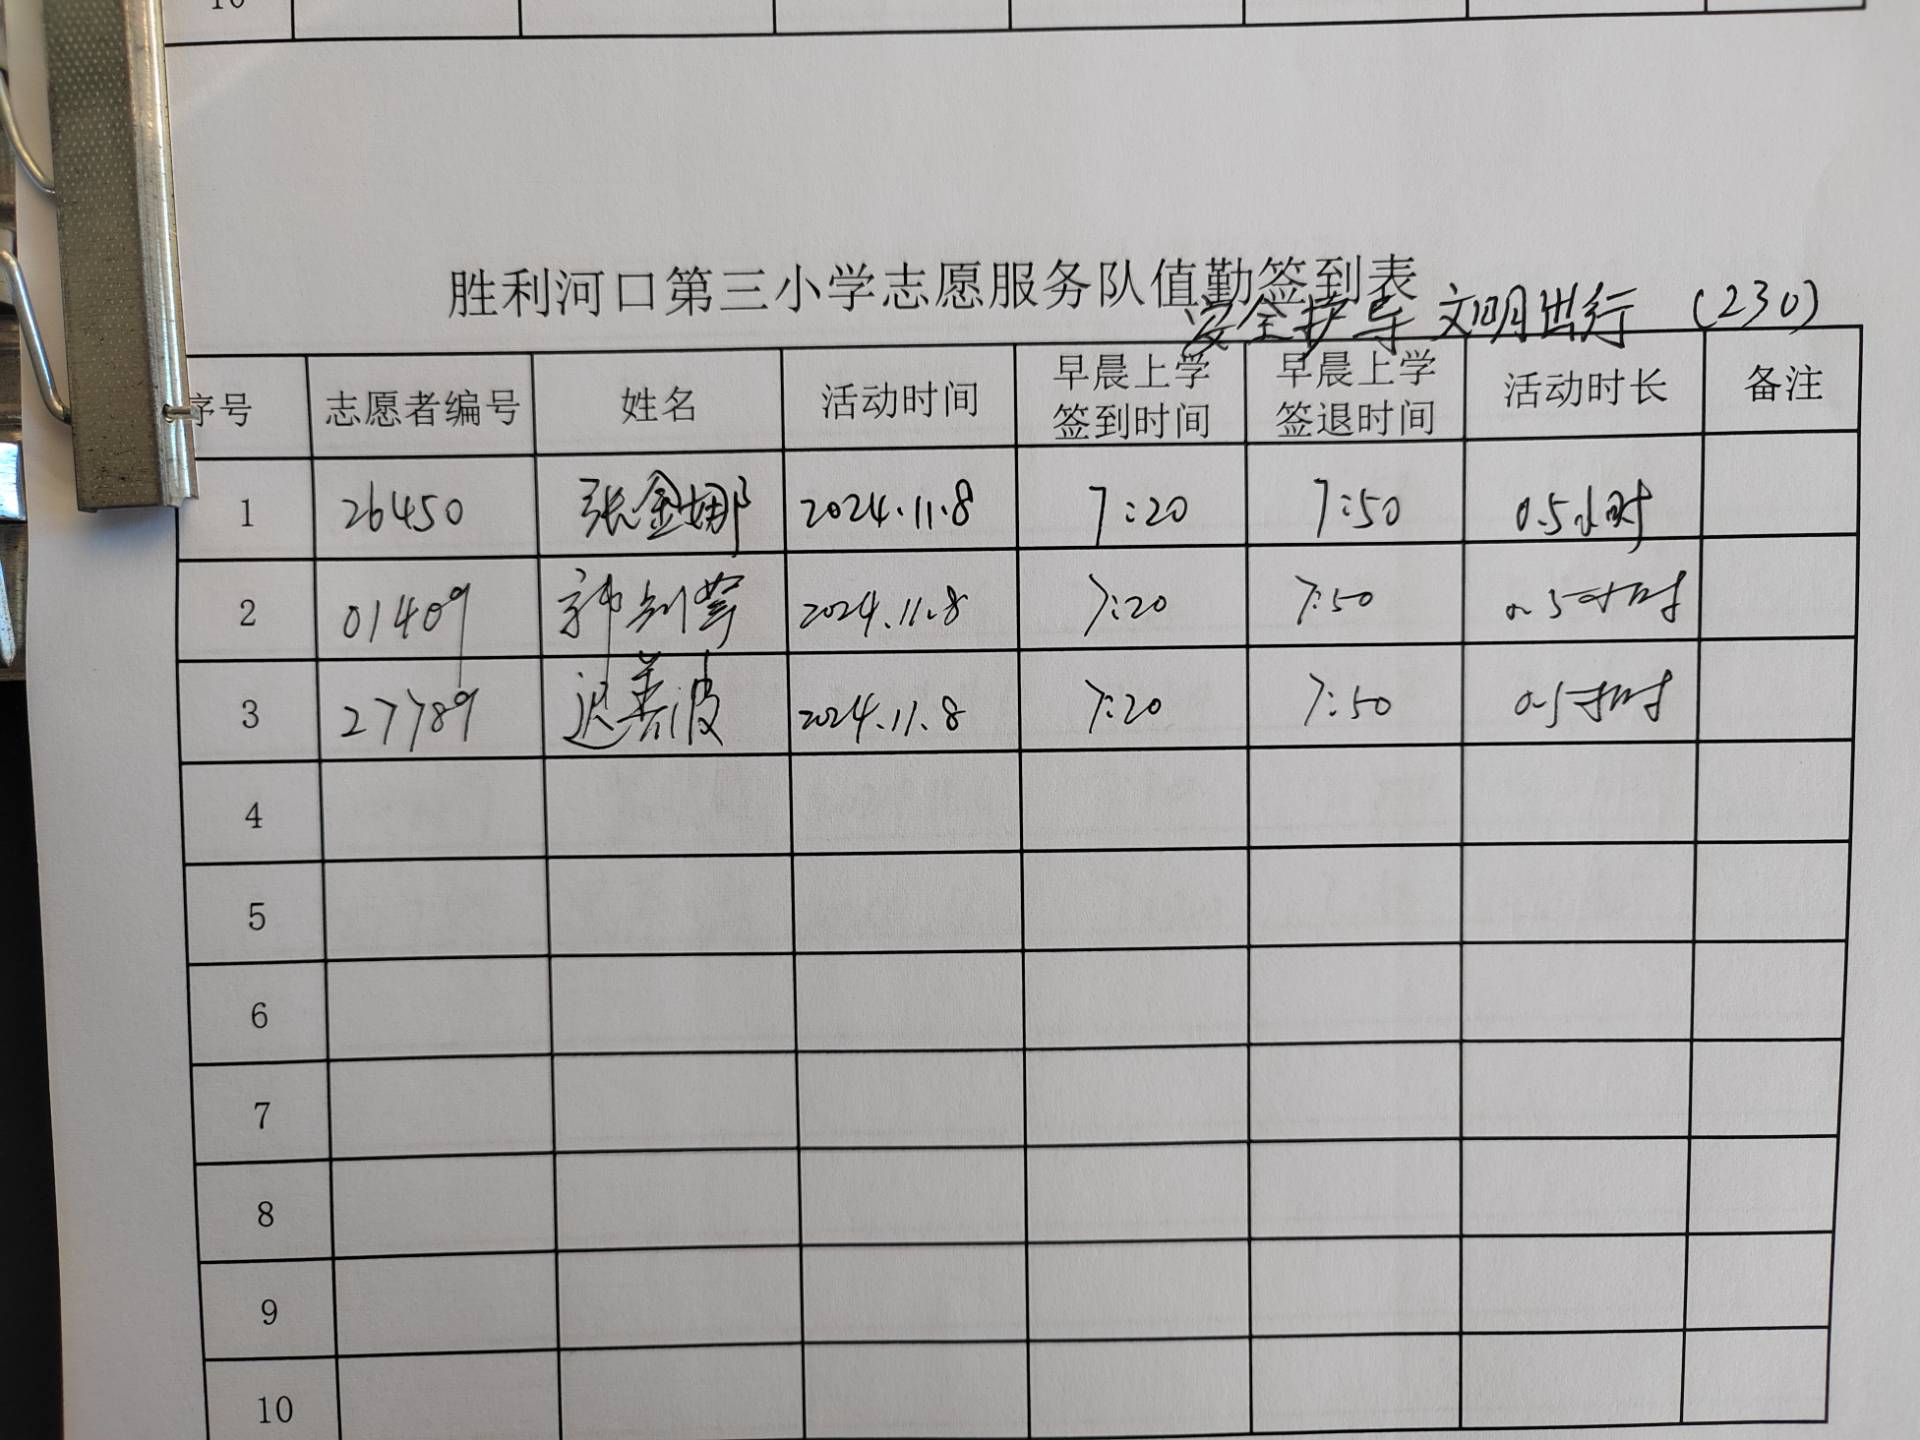 10
胜利河口第三小学志愿服务队值勤签到表
安全护导 文明出行 (230)
序号 志愿者编号 姓名 活动时间 早晨上学签到时间 早晨上学签退时间 活动时长 备注
1 26450 张金娜 2024.11.8 7:20 7:50 0.5小时
2 01409 2024.11.8 7:20 7:50 0.5小时
3 27789 迟善波 2024.11.8 7:20 7:50 0.5小时
4
5
6
7
8
9
10